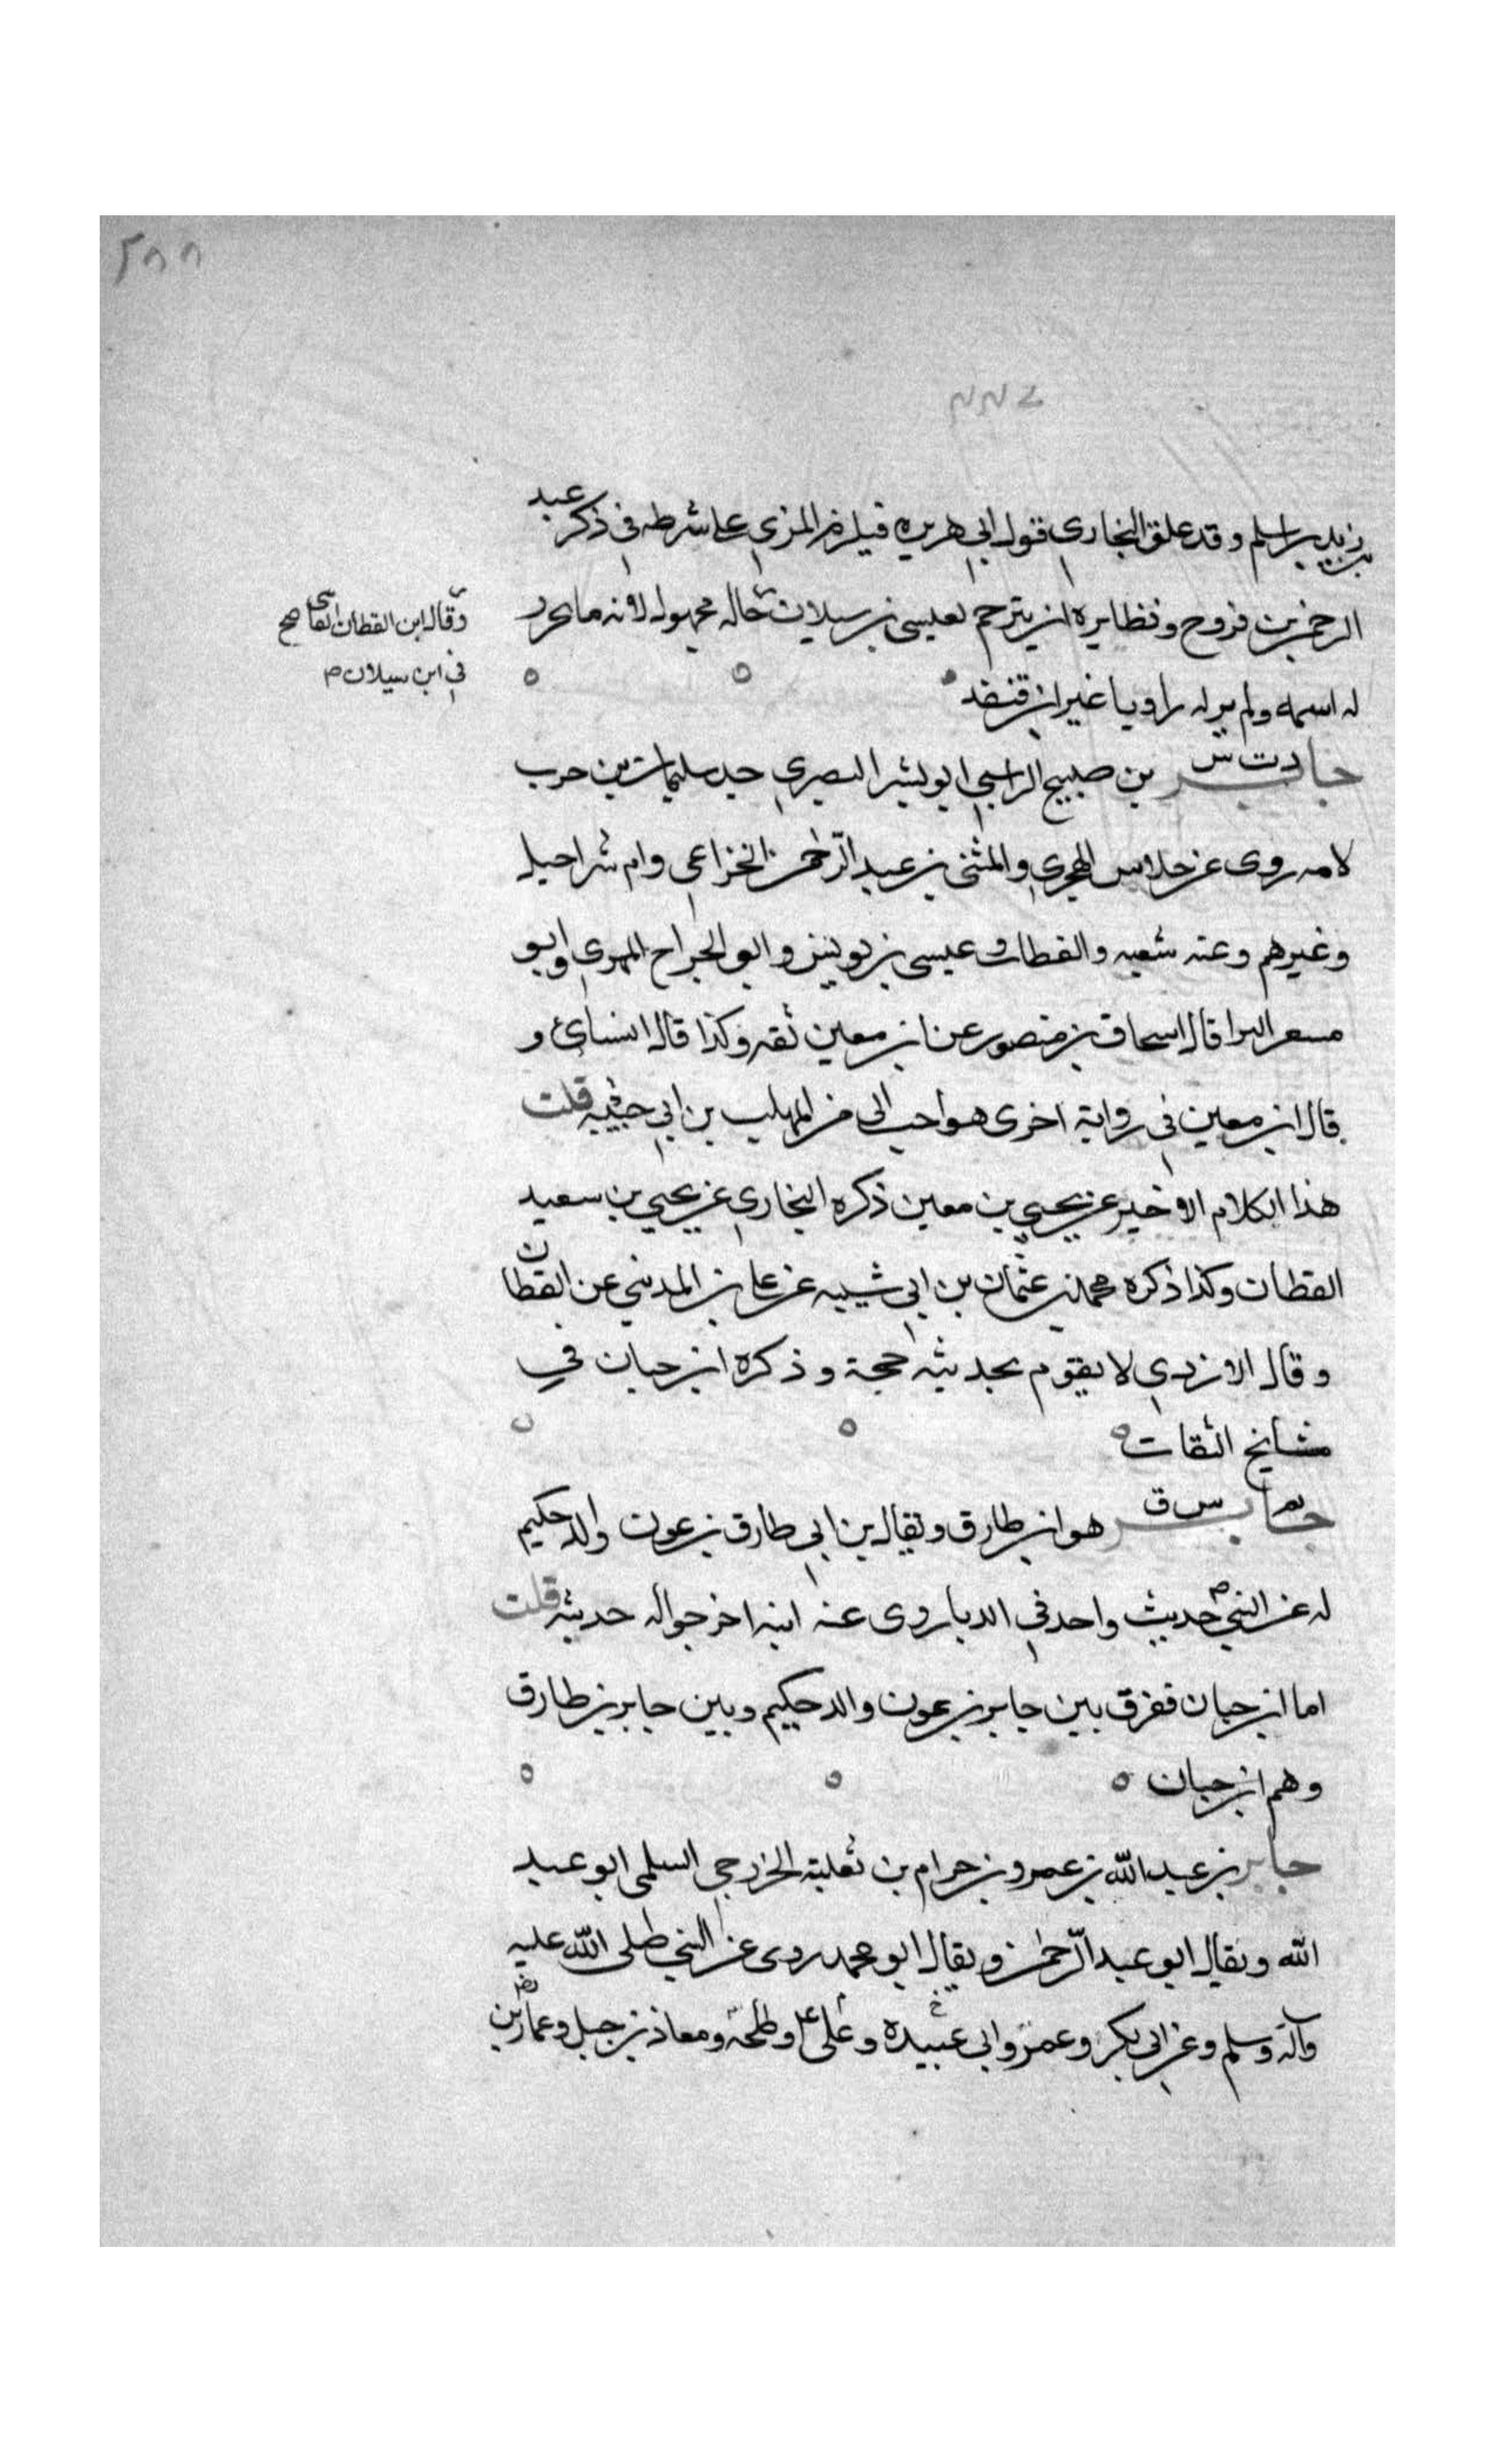 ٢٨٨
بن زيد بن اسلم وقد علق البخارى قول ابي هريره فيلزم المزي على شرطه في ذكر عبد
الرحمن بن فروح ونظايره ان يترجم لعيسى بن سيلان حاله مجهوله لانه ما يحرر
وقال ابن القطان الفاسى صح
في ابن سيلان م
له اسمه ولم ير له راويا غير ابن قنفد
د ت س
جابر بن صبيح الراسبي ابو بشر البصري جد سليمان بن حرب
لامه روى عن خلاس الهجري والمثنى بن عبد الرحمن الخزاعي وام شراحيل
وغيرهم وعنه شعبه والقطان وعيسى بن يونس وابو الجراح المهري وابو
معشر البرا قال اسحاق بن منصور عن ابن معين ثقه وكذا قال النسائ و
قال ابن معين في رواية اخرى هو احب الي من المهلب بن ابي حبيبه قلت
هذا الكلام الاخير عن يحيي بن معين ذكره البخاري عن يحيي بن سعيد
القطان وكذا ذكره محمد بن عثمان بن ابي شيبه عن علي بن المديني عن القطان
وقال الازدي لا يقوم بحديثه حجة وذكره ابن حبان في
مشايخ الثقات
تم س ق
جابر هو ابن طارق ويقال بن ابي طارق بن عون والد حكيم
له عن النبي ص حديث واحد في الدبا روى عنه ابنه اخرجوا له حديثه قلت
اما ابن حبان ففرق بين جابر بن عون والد حكيم وبين جابر بن طارق
وهم ابن حبان
جابر بن عبد الله بن عمرو بن حرام بن ثعلبة الخزرجي السلمى ابو عبد
الله ويقال ابو عبد الرحمن ويقال ابو محمد روى عن النبي صلى الله عليه
وآله وسلم وعن ابي بكر وعمر وابي عبيده وعلى وطلحة ومعاذ بن جبل وعمار بن